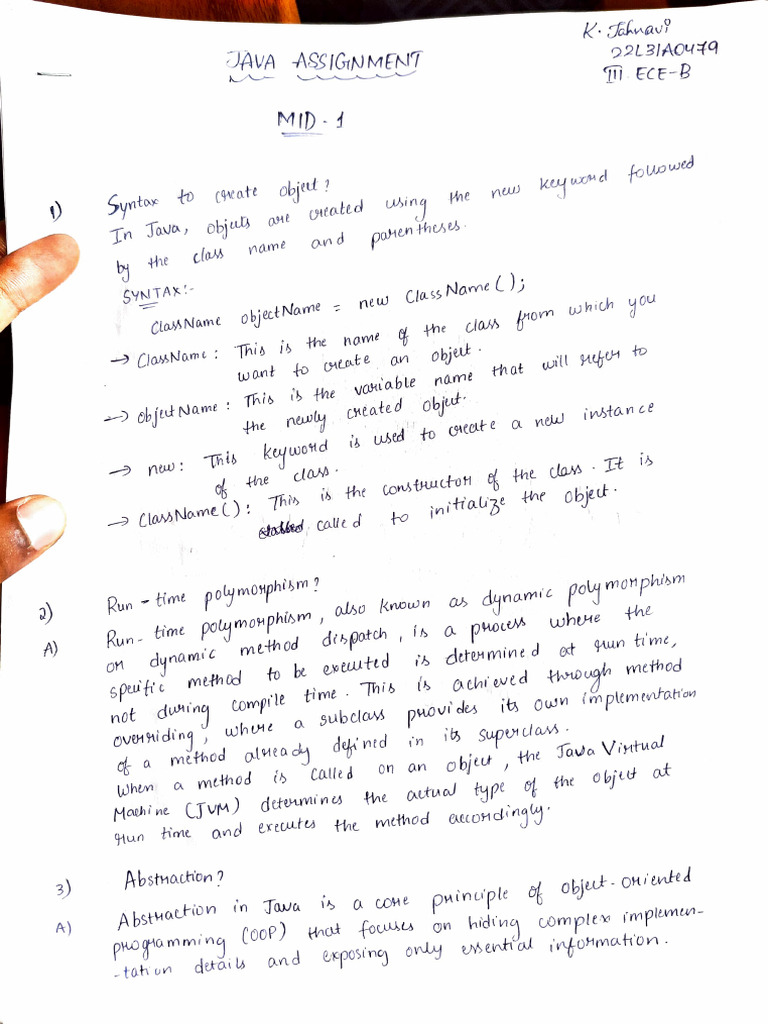 K. Jahnavi
22L31A0479
III ECE-B
JAVA ASSIGNMENT
MID - 1
1) Syntax to create object?
In Java, objects are created using the new keyword followed
by the class name and parentheses.
SYNTAX:-
ClassName objectName = new ClassName();
→ ClassName: This is the name of the class from which you
want to create an object.
→ objectName: This is the variable name that will refer to
the newly created object.
→ new: This keyword is used to create a new instance
of the class.
→ ClassName(): This is the constructor of the class. It is
called to initialize the object.
2) Run-time polymorphism?
A) Run-time polymorphism, also known as dynamic polymorphism
or dynamic method dispatch, is a process where the
specific method to be executed is determined at run time,
not during compile time. This is achieved through method
overriding, where a subclass provides its own implementation
of a method already defined in its superclass.
When a method is called on an object, the Java Virtual
Machine (JVM) determines the actual type of the object at
run time and executes the method accordingly.
3) Abstraction?
A) Abstraction in Java is a core principle of object-oriented
programming (OOP) that focuses on hiding complex implemen-
-tation details and exposing only essential information.